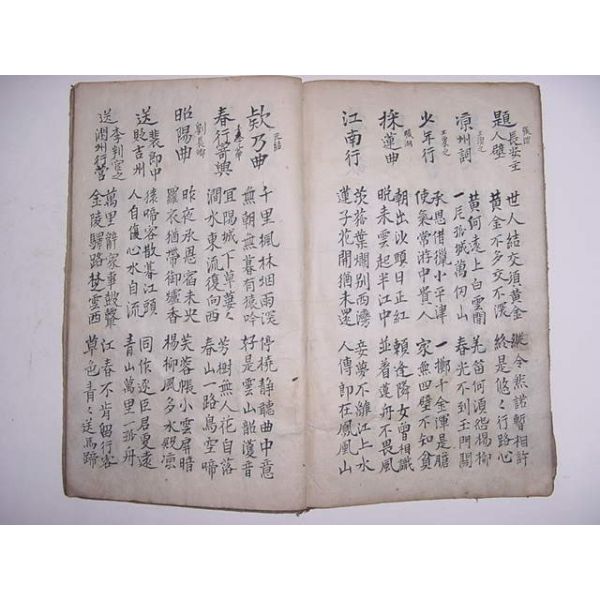 張謂
題長安主人壁
世人結交須黃金 縱令然諾暫相許
黃金不多交不深 終是悠〻行路心
王渙之
凉州詞
黃河遠上白雲間 羌笛何須怨楊柳
一片孤城萬仞山 春光不到玉門關
少年行
承恩借獵小平津 一擲千金渾是膽
使氣常游中貴人 家無四壁不知貧
張潮
採蓮曲
朝出沙頭日正紅 賴逢隣女曾相識
晩來雲起半江中 並着蓮舟不畏風
江南行
茨菰葉爛別西灣 妾夢不離江上水
蓮子花開猶未還 人傳郎在鳳凰山
元結
欸乃曲
千里楓林烟雨深 停橈静聽曲中意
無朝無暮有猿吟 好是雲山韶濩音
春行寄興
宜陽城下草萋〻 芳樹無人花自落
澗水東流復向西 春山一路鳥空啼
劉長卿
昭陽曲
昨夜承恩宿未央 芙蓉帳小雲屏暗
羅衣猶帶御爐香 楊柳風多水殿凉
送裴郎中貶吉州
猿啼客散暮江頭 同作逐臣君更遠
人自傷心水自流 青山萬里一孤舟
送李判官之潤州行營
萬里辭家事鼓鼙 江春不肯留行客
金陵驛路楚雲西 草色青〻送馬蹄